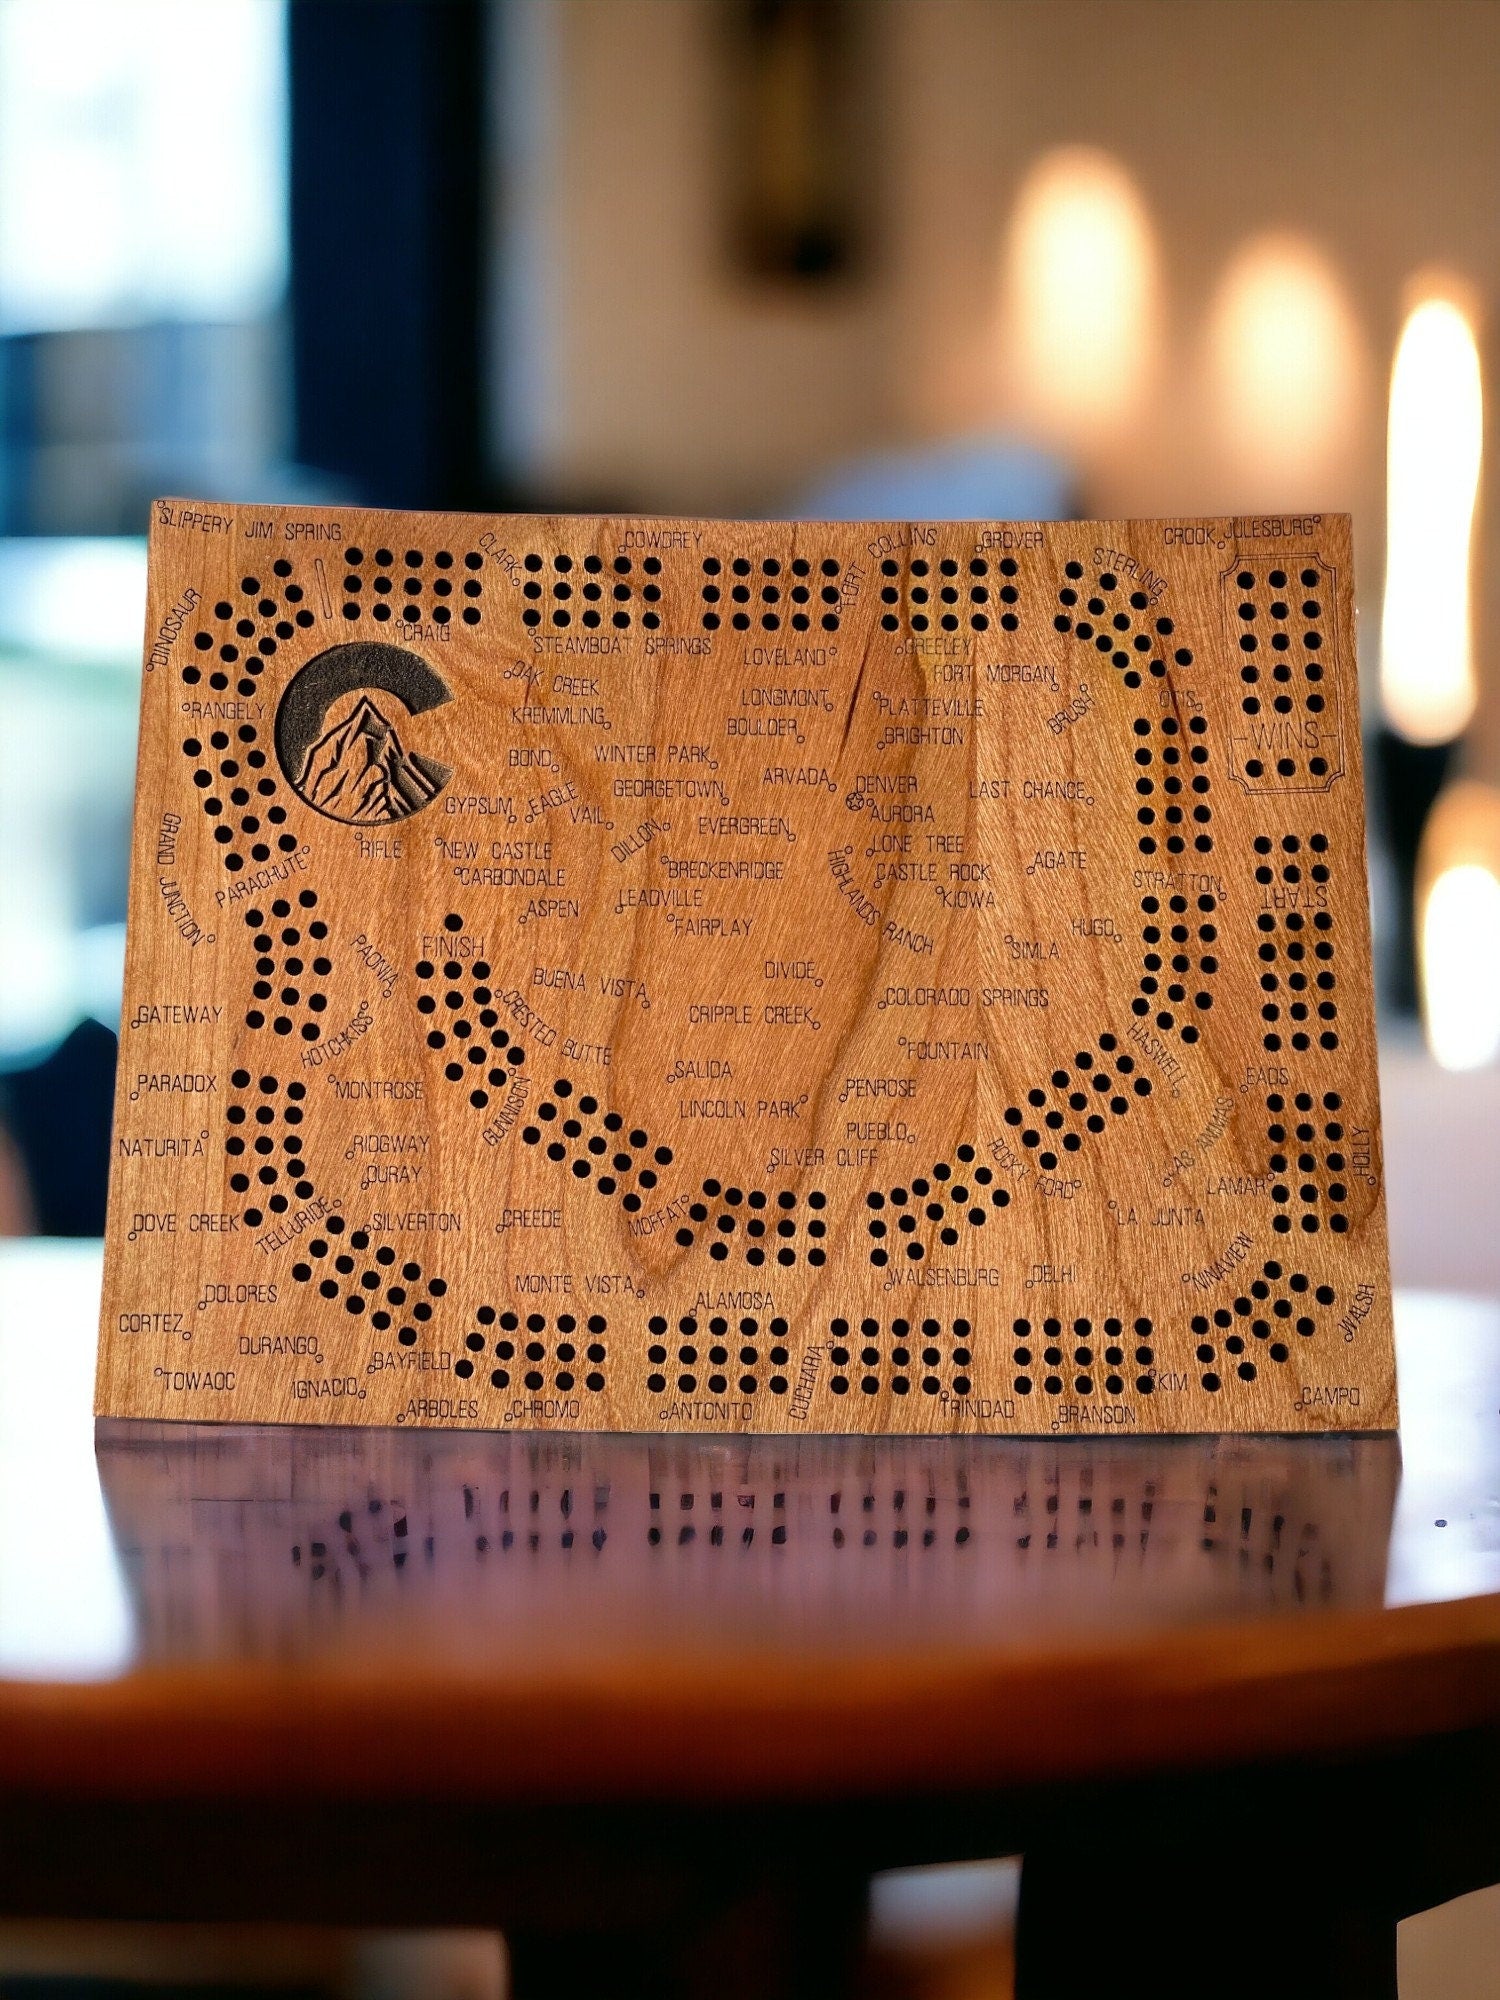 SLIPPERY JIM SPRING
CLARK
COWDREY
FORT COLLINS
GROVER
STERLING
CROOK
JULESBURG
DINOSAUR
CRAIG
STEAMBOAT SPRINGS
LOVELAND
GREELEY
FORT MORGAN
RANGELY
OAK CREEK
KREMMLING
LONGMONT
PLATTEVILLE
BRUSH
OTIS
BOULDER
BRIGHTON
WINS
BOND
WINTER PARK
ARVADA
DENVER
LAST CHANCE
GYPSUM
EAGLE
VAIL
GEORGETOWN
AURORA
DILLON
EVERGREEN
LONE TREE
GRAND JUNCTION
PARACHUTE
RIFLE
NEW CASTLE
BRECKENRIDGE
HIGHLANDS RANCH
CASTLE ROCK
AGATE
STRATTON
START
CARBONDALE
LEADVILLE
KIOWA
ASPEN
FAIRPLAY
HUGO
PAONIA
FINISH
SIMLA
BUENA VISTA
DIVIDE
CRESTED BUTTE
COLORADO SPRINGS
GATEWAY
HOTCHKISS
CRIPPLE CREEK
HASWELL
FOUNTAIN
PARADOX
MONTROSE
SALIDA
PENROSE
EADS
GUNNISON
LINCOLN PARK
LAS ANIMAS
NATURITA
RIDGWAY
PUEBLO
ROCKY FORD
HOLLY
OURAY
SILVER CLIFF
LAMAR
DOVE CREEK
TELLURIDE
SILVERTON
CREEDE
MOFFAT
LA JUNTA
NINAVIEW
DOLORES
MONTE VISTA
WALSENBURG
DELHI
CORTEZ
ALAMOSA
WALSH
DURANGO
BAYFIELD
CUCHARA
TOWAOC
IGNACIO
KIM
CAMPO
ARBOLES
CHROMO
ANTONITO
TRINIDAD
BRANSON